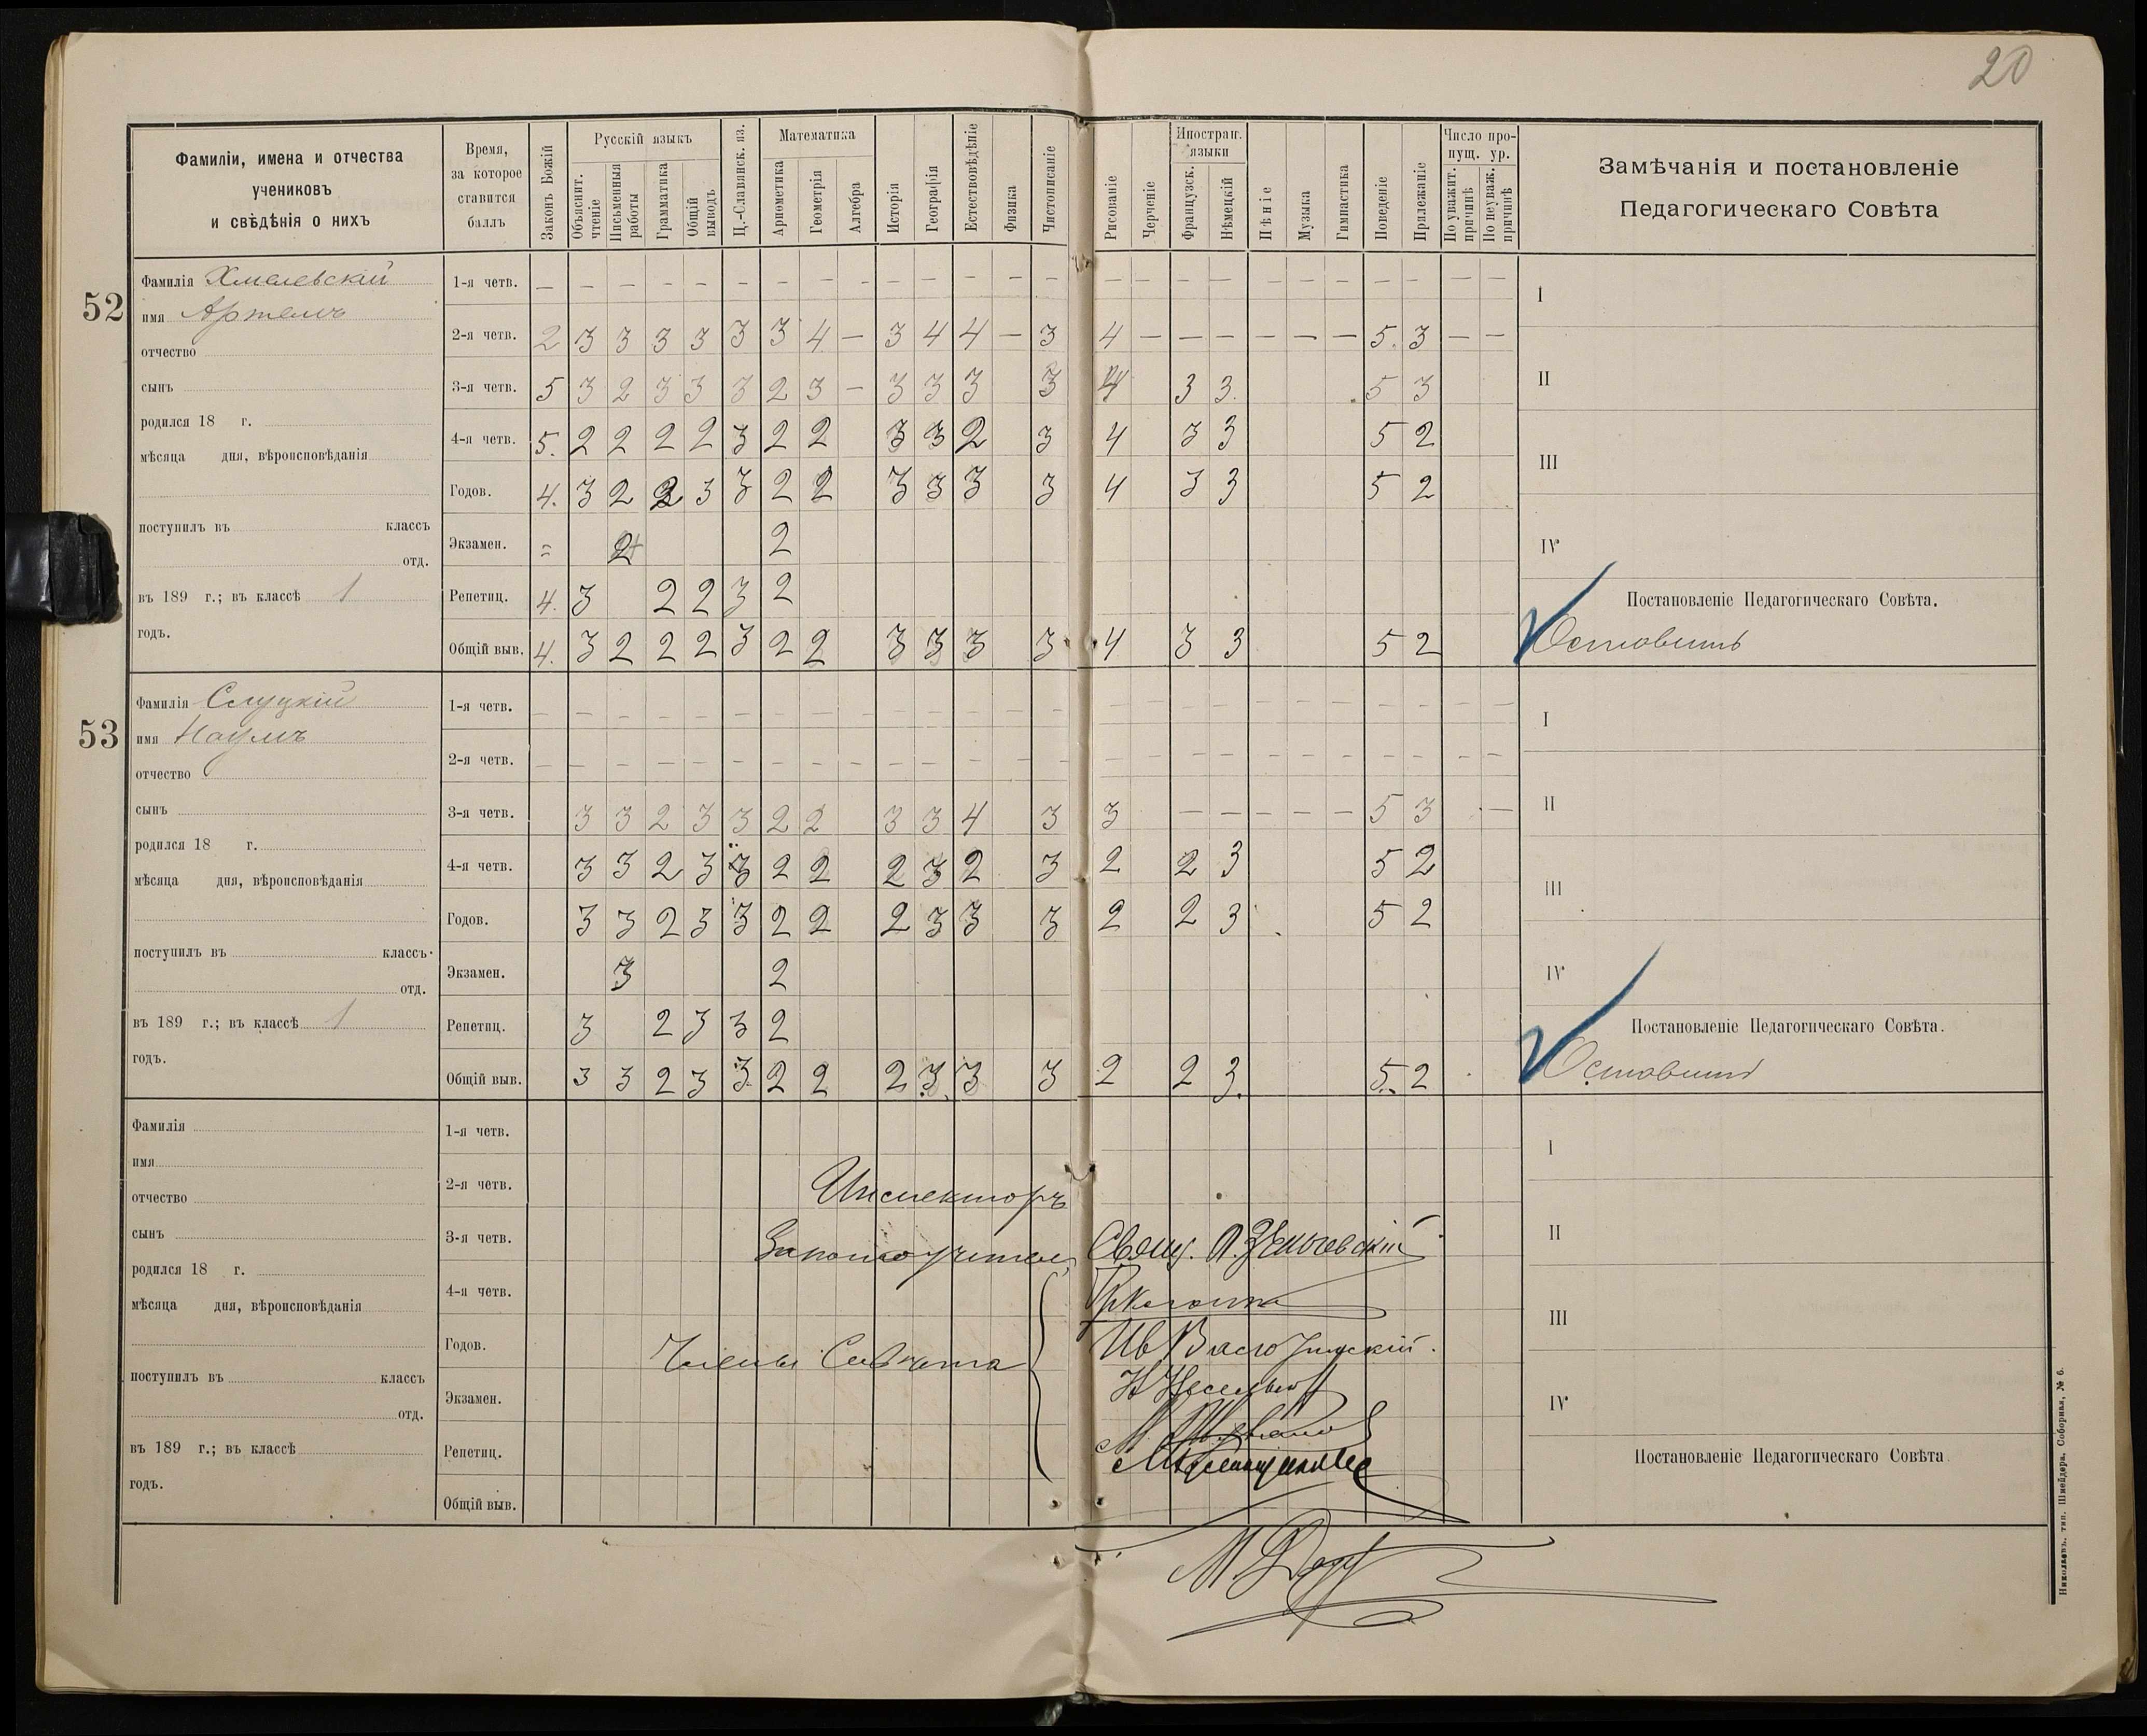 20
Фамиліи, имена и отчества
учениковъ
и свѣдѣнія о нихъ
Время,
за которое
ставится
баллъ
Законъ Божій
Русскій языкъ
Объяснит. чтеніе
Письменныя работы
Грамматика
Общій выводъ
Ц.-Славянск. яз.
Математика
Арифметика
Геометрія
Алгебра
Исторія
Географія
Естествовѣдѣніе
Физика
Чистописаніе
Рисованіе
Черченіе
Иностран. языки
Французск.
Нѣмецкій
Пѣніе
Музыка
Гимнастика
Поведеніе
Прилежаніе
Число пропущ. ур.
По уважит. причинѣ
По неуваж. причинѣ
Замѣчанія и постановленіе
Педагогическаго Совѣта
52
Фамилія Хмелевскій
имя Артемъ
отчество
сынъ
родился 18 г.
мѣсяца дня, вѣроисповѣданія
поступилъ въ классъ
отд.
въ 189 г.; въ классѣ 1
годъ.
1-я четв. — — — — — — — — — — — — — — — — — — — — — — — — —
2-я четв. 2 3 3 3 3 3 3 4 — 3 4 4 — 3 4 — — — — — — 5. 3 — —
3-я четв. 5 3 2 3 3 3 2 3 — 3 3 3 3 4 3 3. 5 3
4-я четв. 5. 2 2 2 2 3 2 2 3 3 2 3 4 3 3 5 2
Годов. 4. 3 2 2 3 3 2 2 3 3 3 3 4 3 3 5 2
Экзамен. = 2 2
Репетиц. 4. 3 2 2 3 2
Общій выв. 4. 3 2 2 2 3 2 2 3 3 3 3 4 3 3 5 2
I
II
III
IV
Постановленіе Педагогическаго Совѣта.
Оставить
53
Фамилія Слуцкій
имя Наумъ
отчество
сынъ
родился 18 г.
мѣсяца дня, вѣроисповѣданія
поступилъ въ классъ
отд.
въ 189 г.; въ классѣ 1
годъ.
1-я четв. — — — — — — — — — — — — — — — — — — — — — — — — —
2-я четв. — — — — — — — — — — — — — — — — — — — — — — — — —
3-я четв. 3 3 2 3 3 2 2 3 3 4 3 3 — — — — — 5 3 —
4-я четв. 3 3 2 3 3 2 2 2 3 2 3 2 2 3 5 2
Годов. 3 3 2 3 3 2 2 2 3 3 3 2 2 3 5 2
Экзамен. 3 2
Репетиц. 3 2 3 3 2
Общій выв. 3 3 2 3 3 2 2 2 3 3 3 2 2 3. 5. 2
I
II
III
IV
Постановленіе Педагогическаго Совѣта.
Оставить
Фамилія
имя
отчество
сынъ
родился 18 г.
мѣсяца дня, вѣроисповѣданія
поступилъ въ классъ
отд.
въ 189 г.; въ классѣ
годъ.
1-я четв.
2-я четв.
3-я четв.
4-я четв.
Годов.
Экзамен.
Репетиц.
Общій выв.
Инспекторъ
Законоучитель Свящ.
Члены Совѣта
I
II
III
IV
Постановленіе Педагогическаго Совѣта
Николаевъ, тип. Шнейдера, Соборная, № 6.